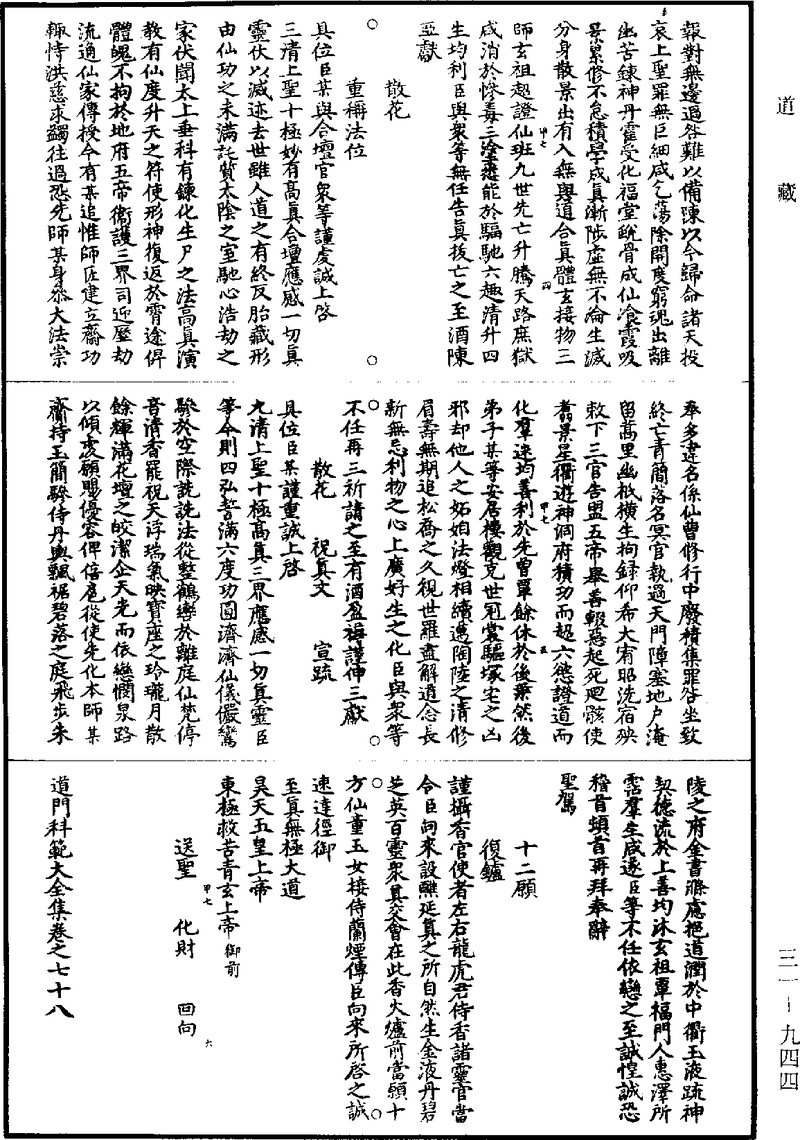 道藏
三一－九四四
報對無邊過咎難以備陳以今歸命諸天投
哀上聖罪無巨細咸乞蕩除開度窮魂出離
幽苦鍊神丹霍受化福堂蛻骨成仙飡霞吸
景累修不怠積學成真漸陟虛無不淪生滅
分身散景出有入無與道合真體玄接物三
師玄祖超證仙班九世先亡升騰天路庶獄
咸消於慘毒三塗悉能於驅馳六趣清升四
生均利臣與眾等無任告真拔亡之至酒陳
亞獻
散花
重稱法位
具位臣某與合壇官衆等謹虔誠上啓
三清上聖十極妙有高真合壇應感一切真
靈伏以滅迹去世雖人道之有終反胎藏形
由仙功之未滿託質太陰之室馳心浩劫之
家伏聞太上垂科有鍊化生尸之法高真演
教有仙度升天之符使形神復返於霄途俾
體魄不拘於地府五帝衛護三界司迎歷劫
流通仙家傳授今有某追惟師匠建立齋功
輒恃洪慈求蠲往過恐先師某身忝大法崇
奉多違名係仙曹修行中廢積集罪咎坐致
終亡青簡落名冥官執過天門障塞地戶淹
留萬里幽抵橫生拘錄仰希大宥昭洗宿殃
敕下三官告盟五帝舉善輟惡起死迴骸使
翥景星衢遊神洞府積功而超六慾證道而
化羣迷均善利於先曾覃餘休於後裔然後
弟子某等安居樓觀克世冠裳驅塚宅之凶
邪却他人之妬妲法燈相續邁陶陸之清修
眉壽無期追松喬之久視世羅盡解道念長
新無忌利物之心上廣好生之化臣與衆等
不任再三祈請之至有酒盈樽謹伸三獻
散花　祝真文　宣疏
具位臣某謹重誠上啓
九清上聖十極高真三界應感一切真靈臣
等今則四弘誓滿六度功圓濟濟仙儀儼鸞
驂於空際詵詵法從整鶴轡於離庭仙梵停
音清香罷祝天浮瑞氣映寶座之玲瓏月散
餘輝滿花壇之皎潔企天光而依戀憫泉路
以傾虔願賜優容俾倍扈從使先化本師某
齋持玉簡驂侍丹輿飄裾碧落之庭飛步朱
陵之府金書滌慮挹道潤於中衢玉液疏神
契德流於上善均沐玄祖覃福門人惠澤所
霑羣生咸遂臣等不任依戀之至誠惶誠恐
稽首頓首再拜奉辭
聖駕
十二願
復鑪
謹攝香官使者左右龍虎君侍香諸靈官當
令臣向來設醮延真之所自然生金液丹碧
芝英百靈衆真交會在此香火爐前當願十
方仙童玉女接侍蘭煙傳臣向來所啓之誠
速達徑御
至真無極大道
昊天五皇上帝
東極救苦青玄上帝御前
送聖　化財　回向
道門科範大全集卷之七十八
甲七
四
甲七
五
甲七
六